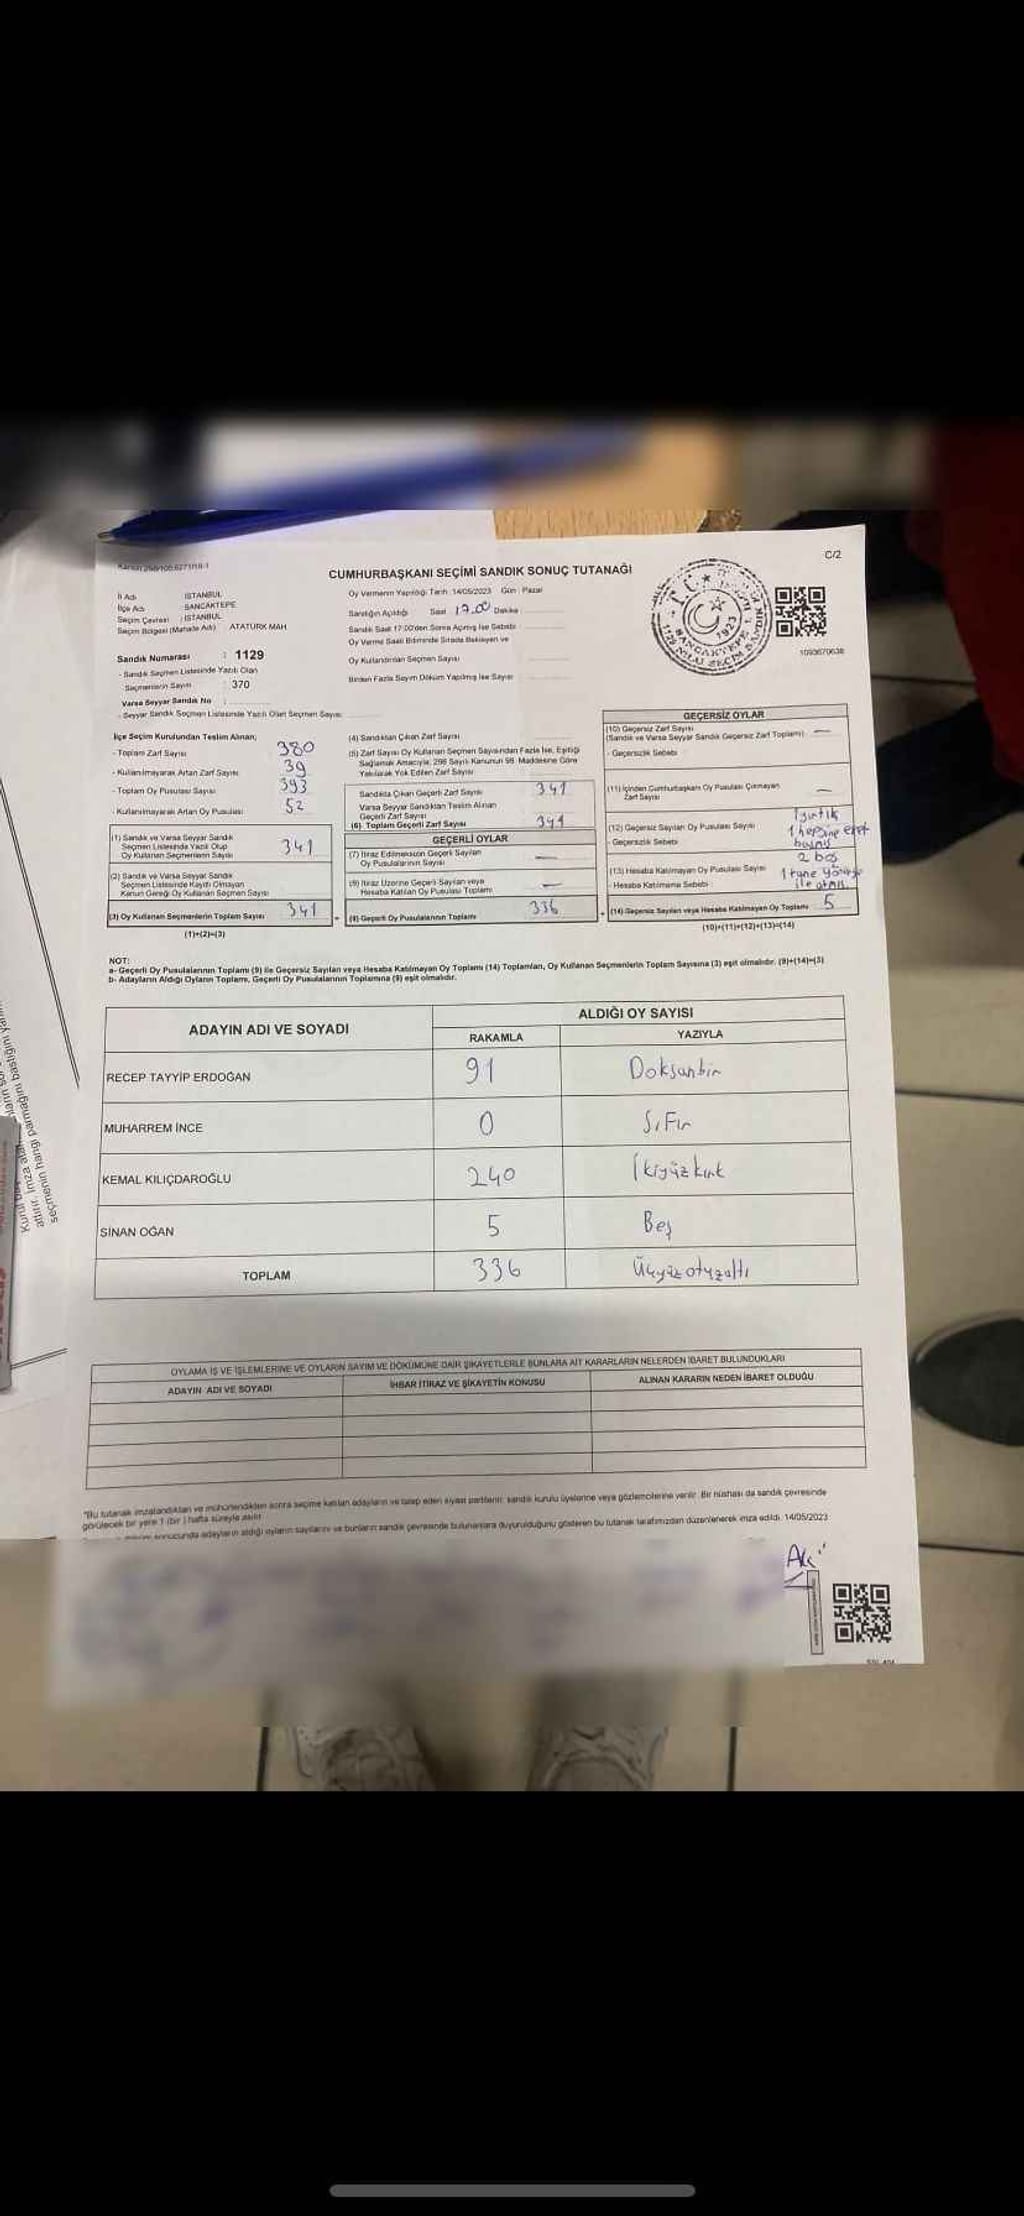 C/2
CUMHURBAŞKANI SEÇİMİ SANDIK SONUÇ TUTANAĞI
İl Adı : İSTANBUL
İlçe Adı : SANCAKTEPE
Seçim Çevresi : İSTANBUL
Seçim Bölgesi (Mahalle Adı) : ATATÜRK MAH
Sandık Numarası : 1129
- Sandık Seçmen Listesinde Yazılı Olan
Seçmenlerin Sayısı : 370
Varsa Seyyar Sandık No :
- Seyyar Sandık Seçmen Listesinde Yazılı Olan Seçmen Sayısı:
Oy Vermenin Yapıldığı Tarih :14/05/2023 Gün : Pazar
Sandığın Açıldığı Saat 17.00 Dakika
Sandık Saat 17:00'den Sonra Açılmış İse Sebebi
Oy Verme Saati Bitiminde Sırada Bekleyen ve
Oy Kullandırılan Seçmen Sayısı
Birden Fazla Sayım Döküm Yapılmış İse Sayısı
1093670638
İlçe Seçim Kurulundan Teslim Alınan;
- Toplam Zarf Sayısı 380
- Kullanılmayarak Artan Zarf Sayısı 39
- Toplam Oy Pusulası Sayısı 393
- Kullanılmayarak Artan Oy Pusulası 52
(1) Sandık ve Varsa Seyyar Sandık
Seçmen Listesinde Yazılı Olup
Oy Kullanan Seçmenlerin Sayısı 341
(2) Sandık ve Varsa Seyyar Sandık
Seçmen Listesinde Kayıtlı Olmayan
Kanun Gereği Oy Kullanan Seçmen Sayısı
(3) Oy Kullanan Seçmenlerin Toplam Sayısı 341
(1)+(2)=(3)
(4) Sandıktan Çıkan Zarf Sayısı
(5) Zarf Sayısı Oy Kullanan Seçmen Sayısından Fazla İse, Eşitliği
Sağlamak Amacıyla, 298 Sayılı Kanunun 98. Maddesine Göre
Yakılarak Yok Edilen Zarf Sayısı
Sandıkta Çıkan Geçerli Zarf Sayısı 341
Varsa Seyyar Sandıktan Teslim Alınan
Geçerli Zarf Sayısı
(6) Toplam Geçerli Zarf Sayısı 341
GEÇERLİ OYLAR
(7) İtiraz Edilmeksizin Geçerli Sayılan
Oy Pusulalarının Sayısı —
İtiraz Üzerine Geçerli Sayılan veya
Hesaba Katılan Oy Pusulası Toplamı —
Geçerli Oy Pusulalarının Toplamı 336
GEÇERSİZ OYLAR
(10) Geçersiz Zarf Sayısı
(Sandık ve Varsa Seyyar Sandık Geçersiz Zarf Toplamı) —
- Geçersizlik Sebebi
(11) İçinden Cumhurbaşkanı Oy Pusulası Çıkmayan
Zarf Sayısı —
(12) Geçersiz Sayılan Oy Pusulası Sayısı
- Geçersizlik Sebebi
1 yırtık
1 hepsine evet
basmış
2 boş
(13) Hesaba Katılmayan Oy Pusulası Sayısı
- Hesaba Katılmama Sebebi
1 tane
(14) Geçersiz Sayılan veya Hesaba Katılmayan Oy Toplamı 5
(10)+(11)+(12)+(13)=(14)
NOT:
a- Geçerli Oy Pusulalarının Toplamı (9) ile Geçersiz Sayılan veya Hesaba Katılmayan Oy Toplamı (14) Toplamları, Oy Kullanan Seçmenlerin Toplam Sayısına (3) eşit olmalıdır. (9)+(14)=(3)
b- Adayların Aldığı Oyların Toplamı, Geçerli Oy Pusulalarının Toplamına (9) eşit olmalıdır.
ADAYIN ADI VE SOYADI
ALDIĞI OY SAYISI
RAKAMLA YAZIYLA
RECEP TAYYİP ERDOĞAN 91 Doksanbir
MUHARREM İNCE 0 Sıfır
KEMAL KILIÇDAROĞLU 240 İkiyüzkırk
SİNAN OĞAN 5 Beş
TOPLAM 336 Üçyüzotuzaltı
OYLAMA İŞ VE İŞLEMLERİNE VE OYLARIN SAYIM VE DÖKÜMÜNE DAİR ŞİKAYETLERLE BUNLARA AİT KARARLARIN NELERDEN İBARET BULUNDUKLARI
ADAYIN ADI VE SOYADI
İHBAR İTİRAZ VE ŞİKAYETİN KONUSU
ALINAN KARARIN NEDEN İBARET OLDUĞU
"Bu tutanak imzalandıktan ve mühürlendikten sonra seçime katılan adayların ve talep eden siyasi partilerin sandık kurulu üyelerine veya gözlemcilerine verilir. Bir nüshası da sandık çevresinde
görülecek bir yere 1 (bir ) hafta süreyle asılır.
sonucunda adayların aldığı oyların sayılarını ve bunların sandık çevresinde bulunanlara duyurulduğunu gösteren bu tutanak tarafımızdan düzenlenerek imza edildi. 14/05/2023